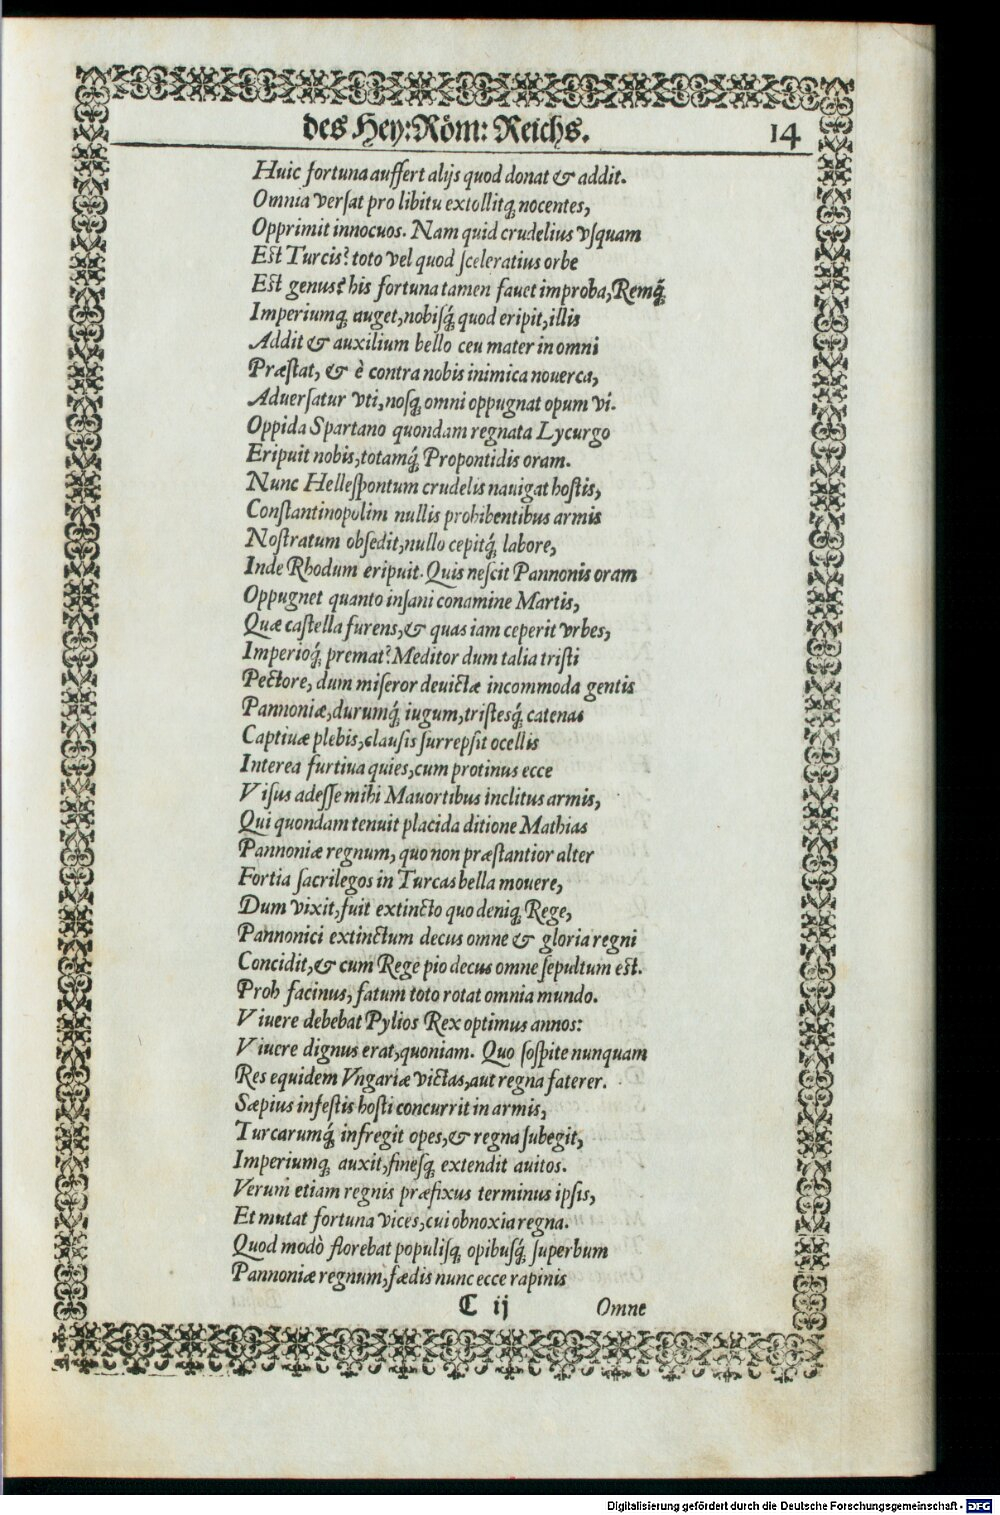 des Hey: Röm: Reichs. 14
Huic fortuna auffert alijs quod donat & addit.
Omnia versat pro libitu extollitq; nocentes,
Opprimit innocuos. Nam quid crudelius vsquam
Est Turcis? toto vel quod sceleratius orbe
Est genus? his fortuna tamen fauet improba, Remq́;
Imperiumq; auget, nobisq́; quod eripit, illis
Addit & auxilium bello ceu mater in omni
Præstat, & è contra nobis inimica nouerca,
Aduersatur vti, nosq; omni oppugnat opum vi.
Oppida Spartano quondam regnata Lycurgo
Eripuit nobis, totamq́; Propontidis oram.
Nunc Hellespontum crudelis nauigat hostis,
Constantinopolim nullis prohibentibus armis
Nostratum obsedit, nullo cepitq́; labore,
Inde Rhodum eripuit. Quis nescit Pannonis oram
Oppugnet quanto insani conamine Martis,
Quæ castella furens, & quas iam ceperit vrbes,
Imperioq́; premat? Meditor dum talia tristi
Pectore, dum miseror deuictæ incommoda gentis
Pannoniæ, durumq́; iugum, tristesq́; catenas
Captiuæ plebis, clausis surrepsit ocellis
Interea furtiua quies, cum protinus ecce
Visus adesse mihi Mauortibus inclitus armis,
Qui quondam tenuit placida ditione Mathias
Pannoniæ regnum, quo non præstantior alter
Fortia sacrilegos in Turcas bella mouere,
Dum vixit, fuit extincto quo deniq; Rege,
Pannonici extinctum decus omne & gloria regni
Concidit, & cum Rege pio decus omne sepultum est.
Proh facinus, fatum toto rotat omnia mundo.
Viuere debebat Pylios Rex optimus annos:
Viuere dignus erat, quoniam. Quo sospite nunquam
Res equidem Vngariæ victas, aut regna faterer.
Sæpius infestis hosti concurrit in armis,
Turcarumq́; infregit opes, & regna subegit,
Imperiumq; auxit, finesq; extendit auitos.
Verum etiam regnis præfixus terminus ipsis,
Et mutat fortuna vices, cui obnoxia regna.
Quod modò florebat populisq; opibusq́; superbum
Pannoniæ regnum, fædis nunc ecce rapinis
C ij Omne
Digitalisierung gefördert durch die Deutsche Forschungsgemeinschaft - DFG